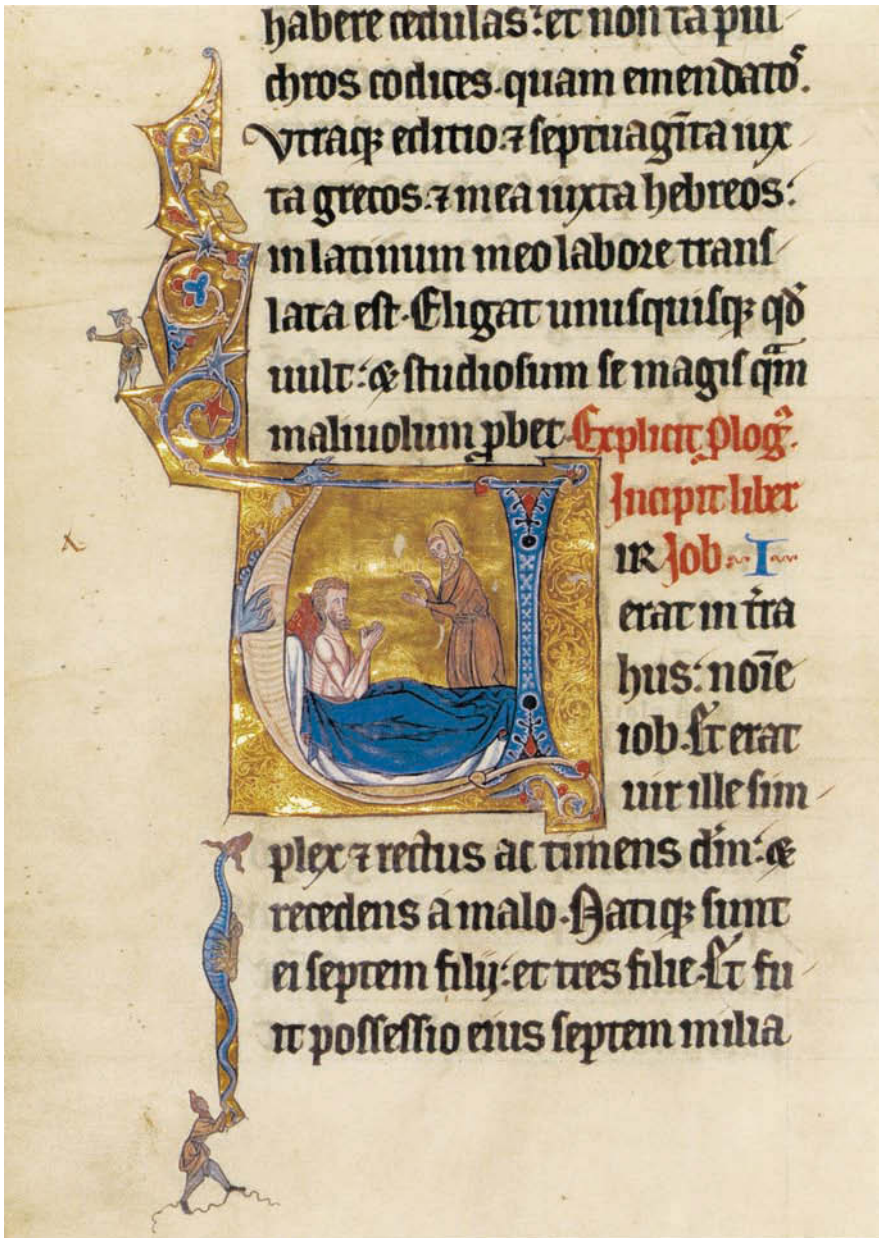 habere cedulas: et non ta pul
chros codices. quam emendatos.
Vtraq; editio. ⁊ septuaginta iux
ta grecos. ⁊ mea iuxta hebreos:
in latinum meo labore trans
lata est. Eligat unusquisq; qđ
uult: & studiosum se magis qm̄
maliuolum ꝓbet. Explicit ꝓlog̃.
Incipit liber
IR Iob. I
erat in tr̄a
hus: noīe
iob. Et erat
uir ille sim
plex ⁊ rectus ac timens dm̄: &
recedens a malo. Natiq; sunt
ei septem filij: et tres filie. Et fu
it possessio eius septem milia